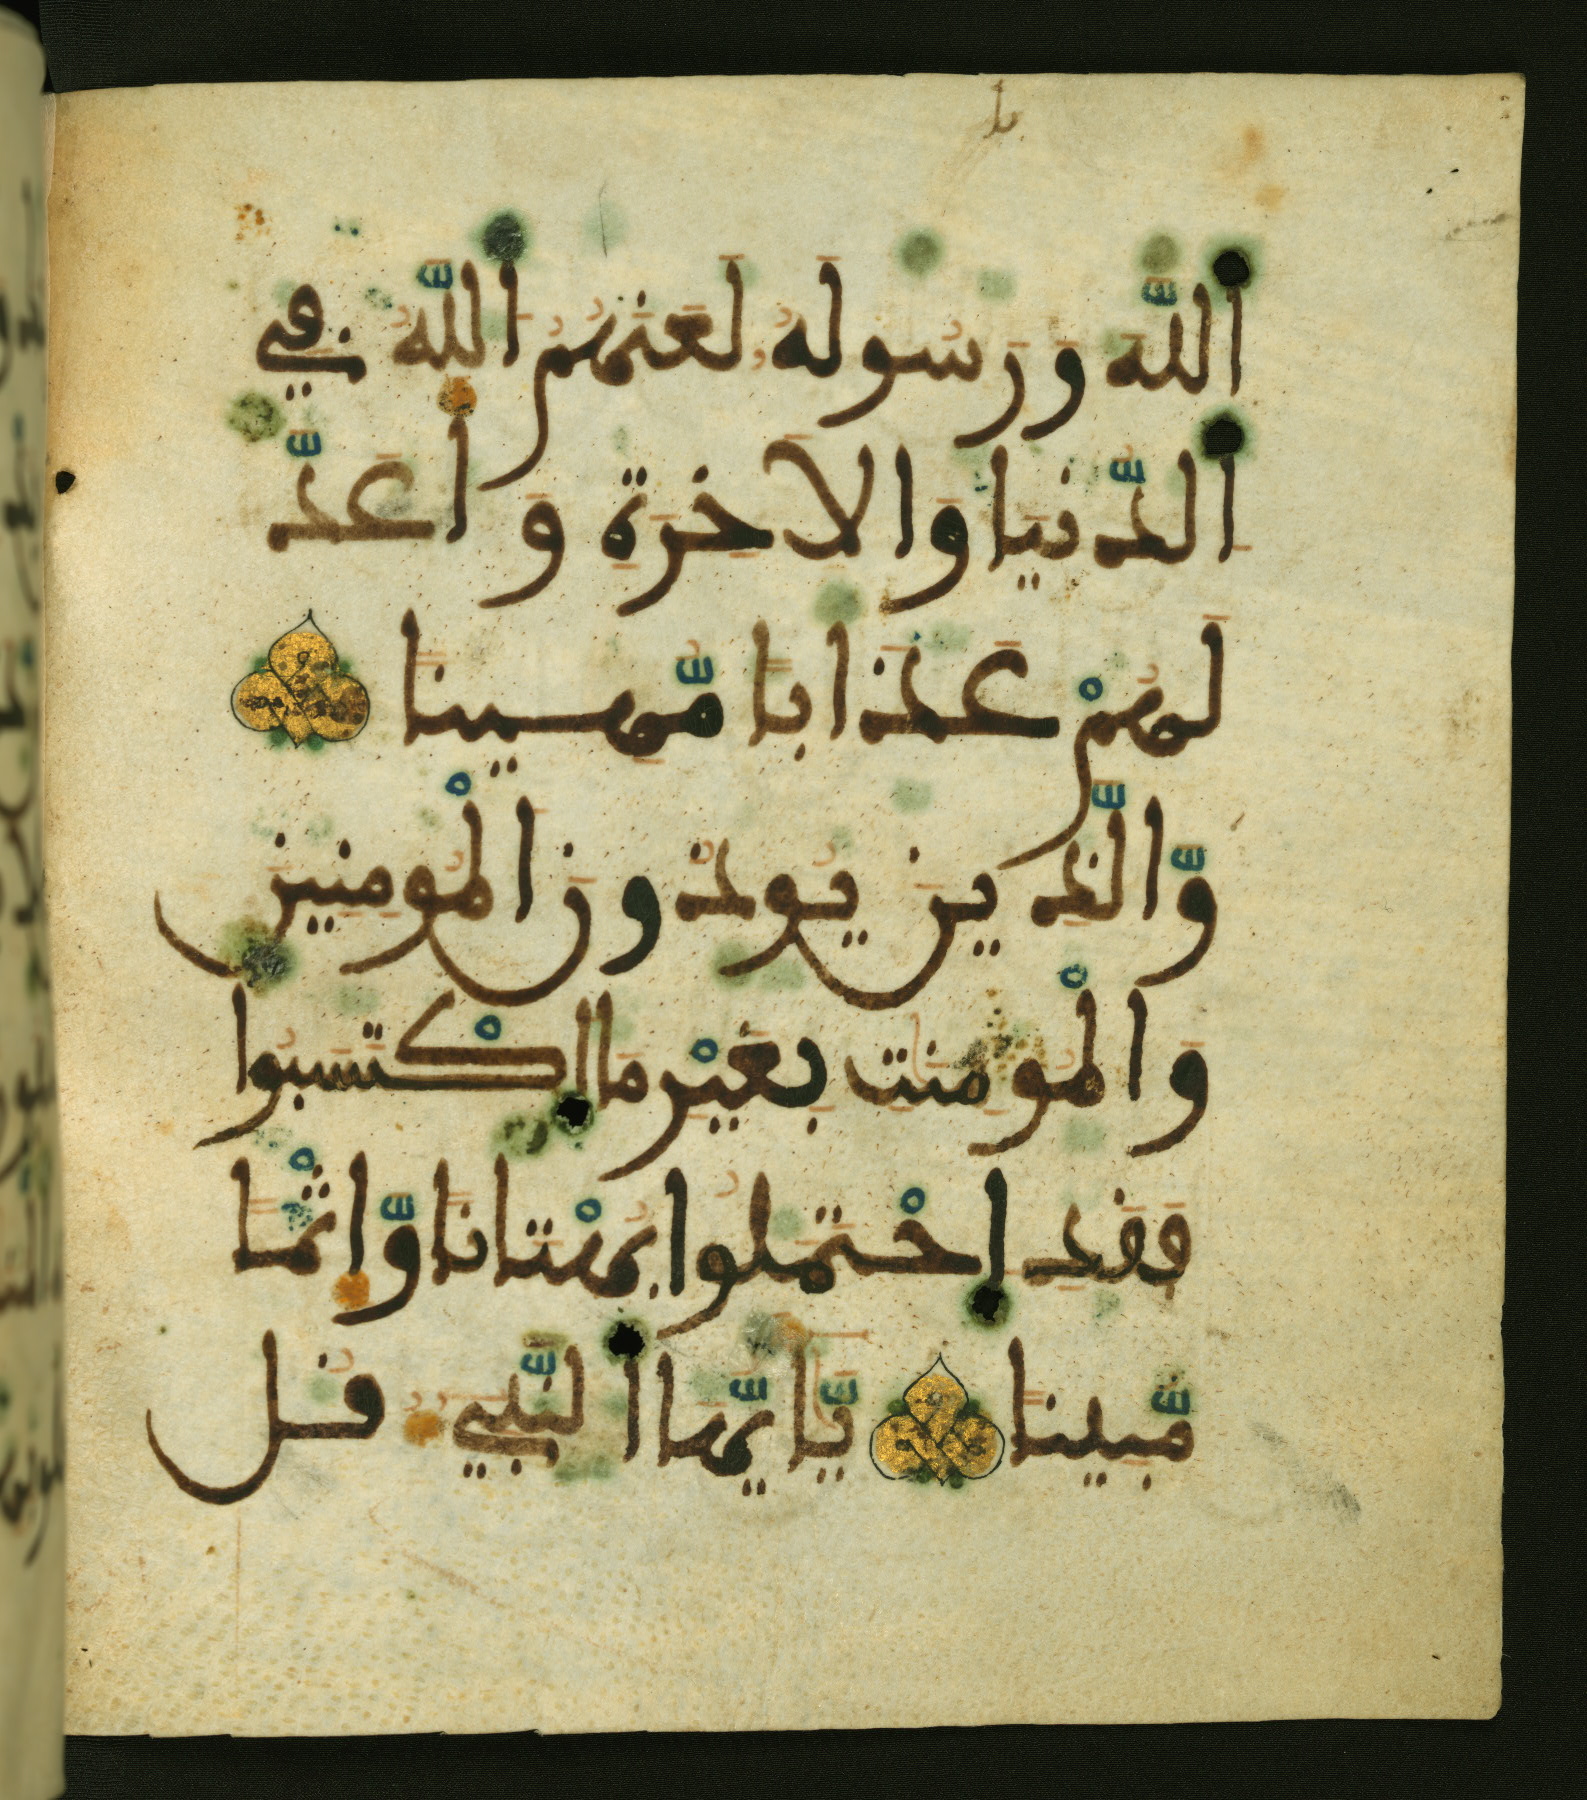 الله ورسوله لعنهم الله في
الدنيا والاخرة وأعد
لهم عذابا مهينا
والذين يوذون المومنين
والمومنت بغير ما اكتسبوا
فقد احتملوا بهتانا وإثما
مبينا يأيها النبيء قل